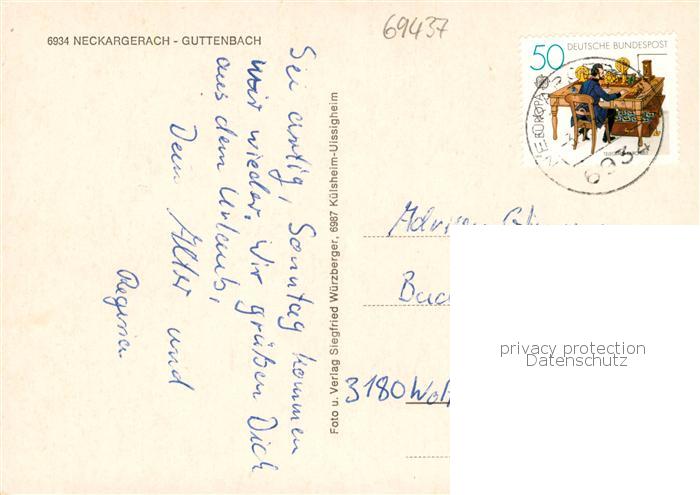 6934 NECKARGERACH - GUTTENBACH
69437
50 DEUTSCHE BUNDESPOST
EUROPA
6934
Sei artig, Sonntag kommen
wir wieder. Wir grüßen Dich
aus dem Urlaub,
Dein Alter und
Regina.
Foto u. Verlag Siegfried Würzberger, 6987 Külsheim-Uissigheim
3180 Wol
privacy protection
Datenschutz